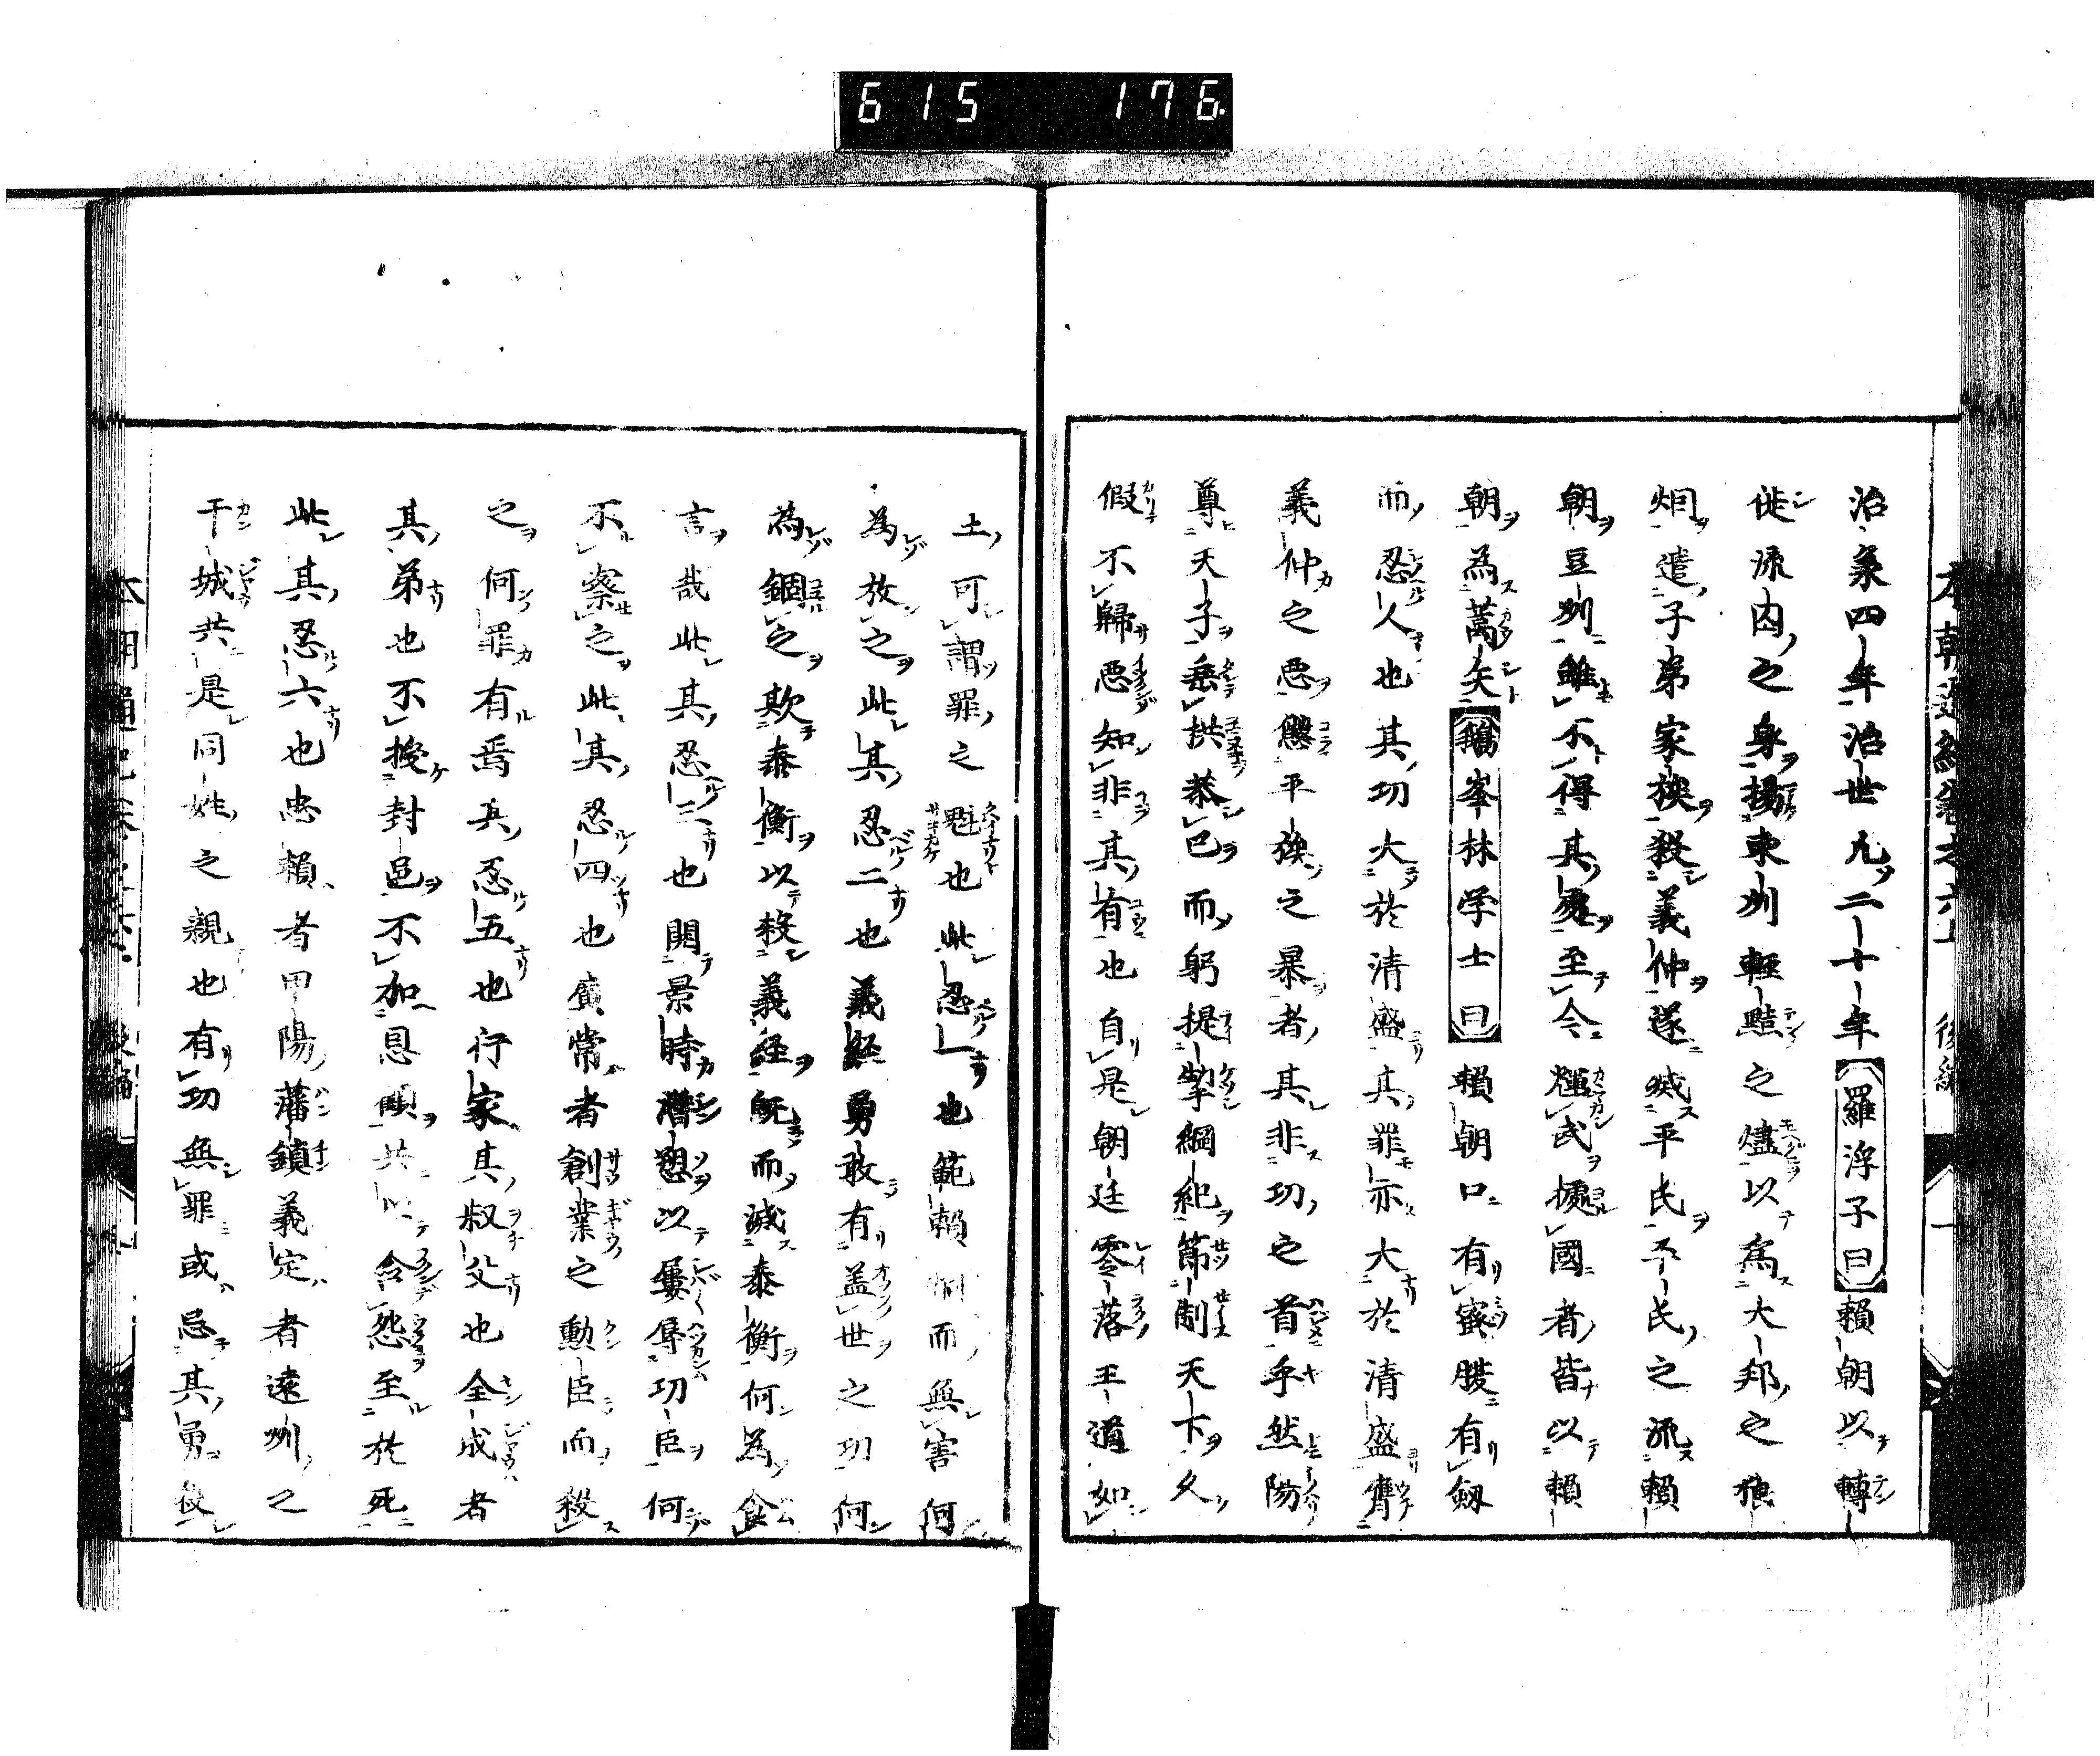 615 176
治象四年治世凡二十年羅浮子曰賴朝以轉
徙流囚之身揚東州輕黠之燼以為大邦之狼
烟遣子弟家挾殺義仲遂滅平氏平氏之流賴
朝豆州雖不得其死至今輝武擾國者皆以賴
朝為蒿矢鵝峯林学士曰賴朝口有蜜腹有劔
而忍人也其功大於清盛其罪亦大於清盛膺
義仲之惡懲平族之暴者其非功之首乎然陽
尊天子垂拱恭己而躬提挈綱紀節制天下久
假不歸惡知非其有也自是朝廷零落王道如
土可謂罪之魁也此忍一也範賴而無害何
為放之此其忍二也義経勇敢有盖世之功何
為錮之欺泰衡以殺義経既而滅泰衡何為食
言哉此其忍三也聞景時潜愬以屢辱功臣何
不察之此其忍四也廣常者創業之勳臣而殺
之何罪有焉其忍五也行家其叔父也全成者
其弟也不授封邑不加恩顧共以含怨至於死
此其忍六也忠賴者甲陽藩鎮義定者遠州之
干城共是同姓之親也有功無罪或忌其勇役